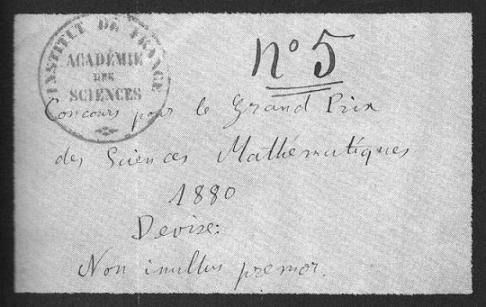 INSTITUT DE FRANCE
ACADÉMIE
DES
SCIENCES
n° 5
Concours pour le Grand Prix
des Sciences Mathématiques
1880
Devise:
Non inultus premor.